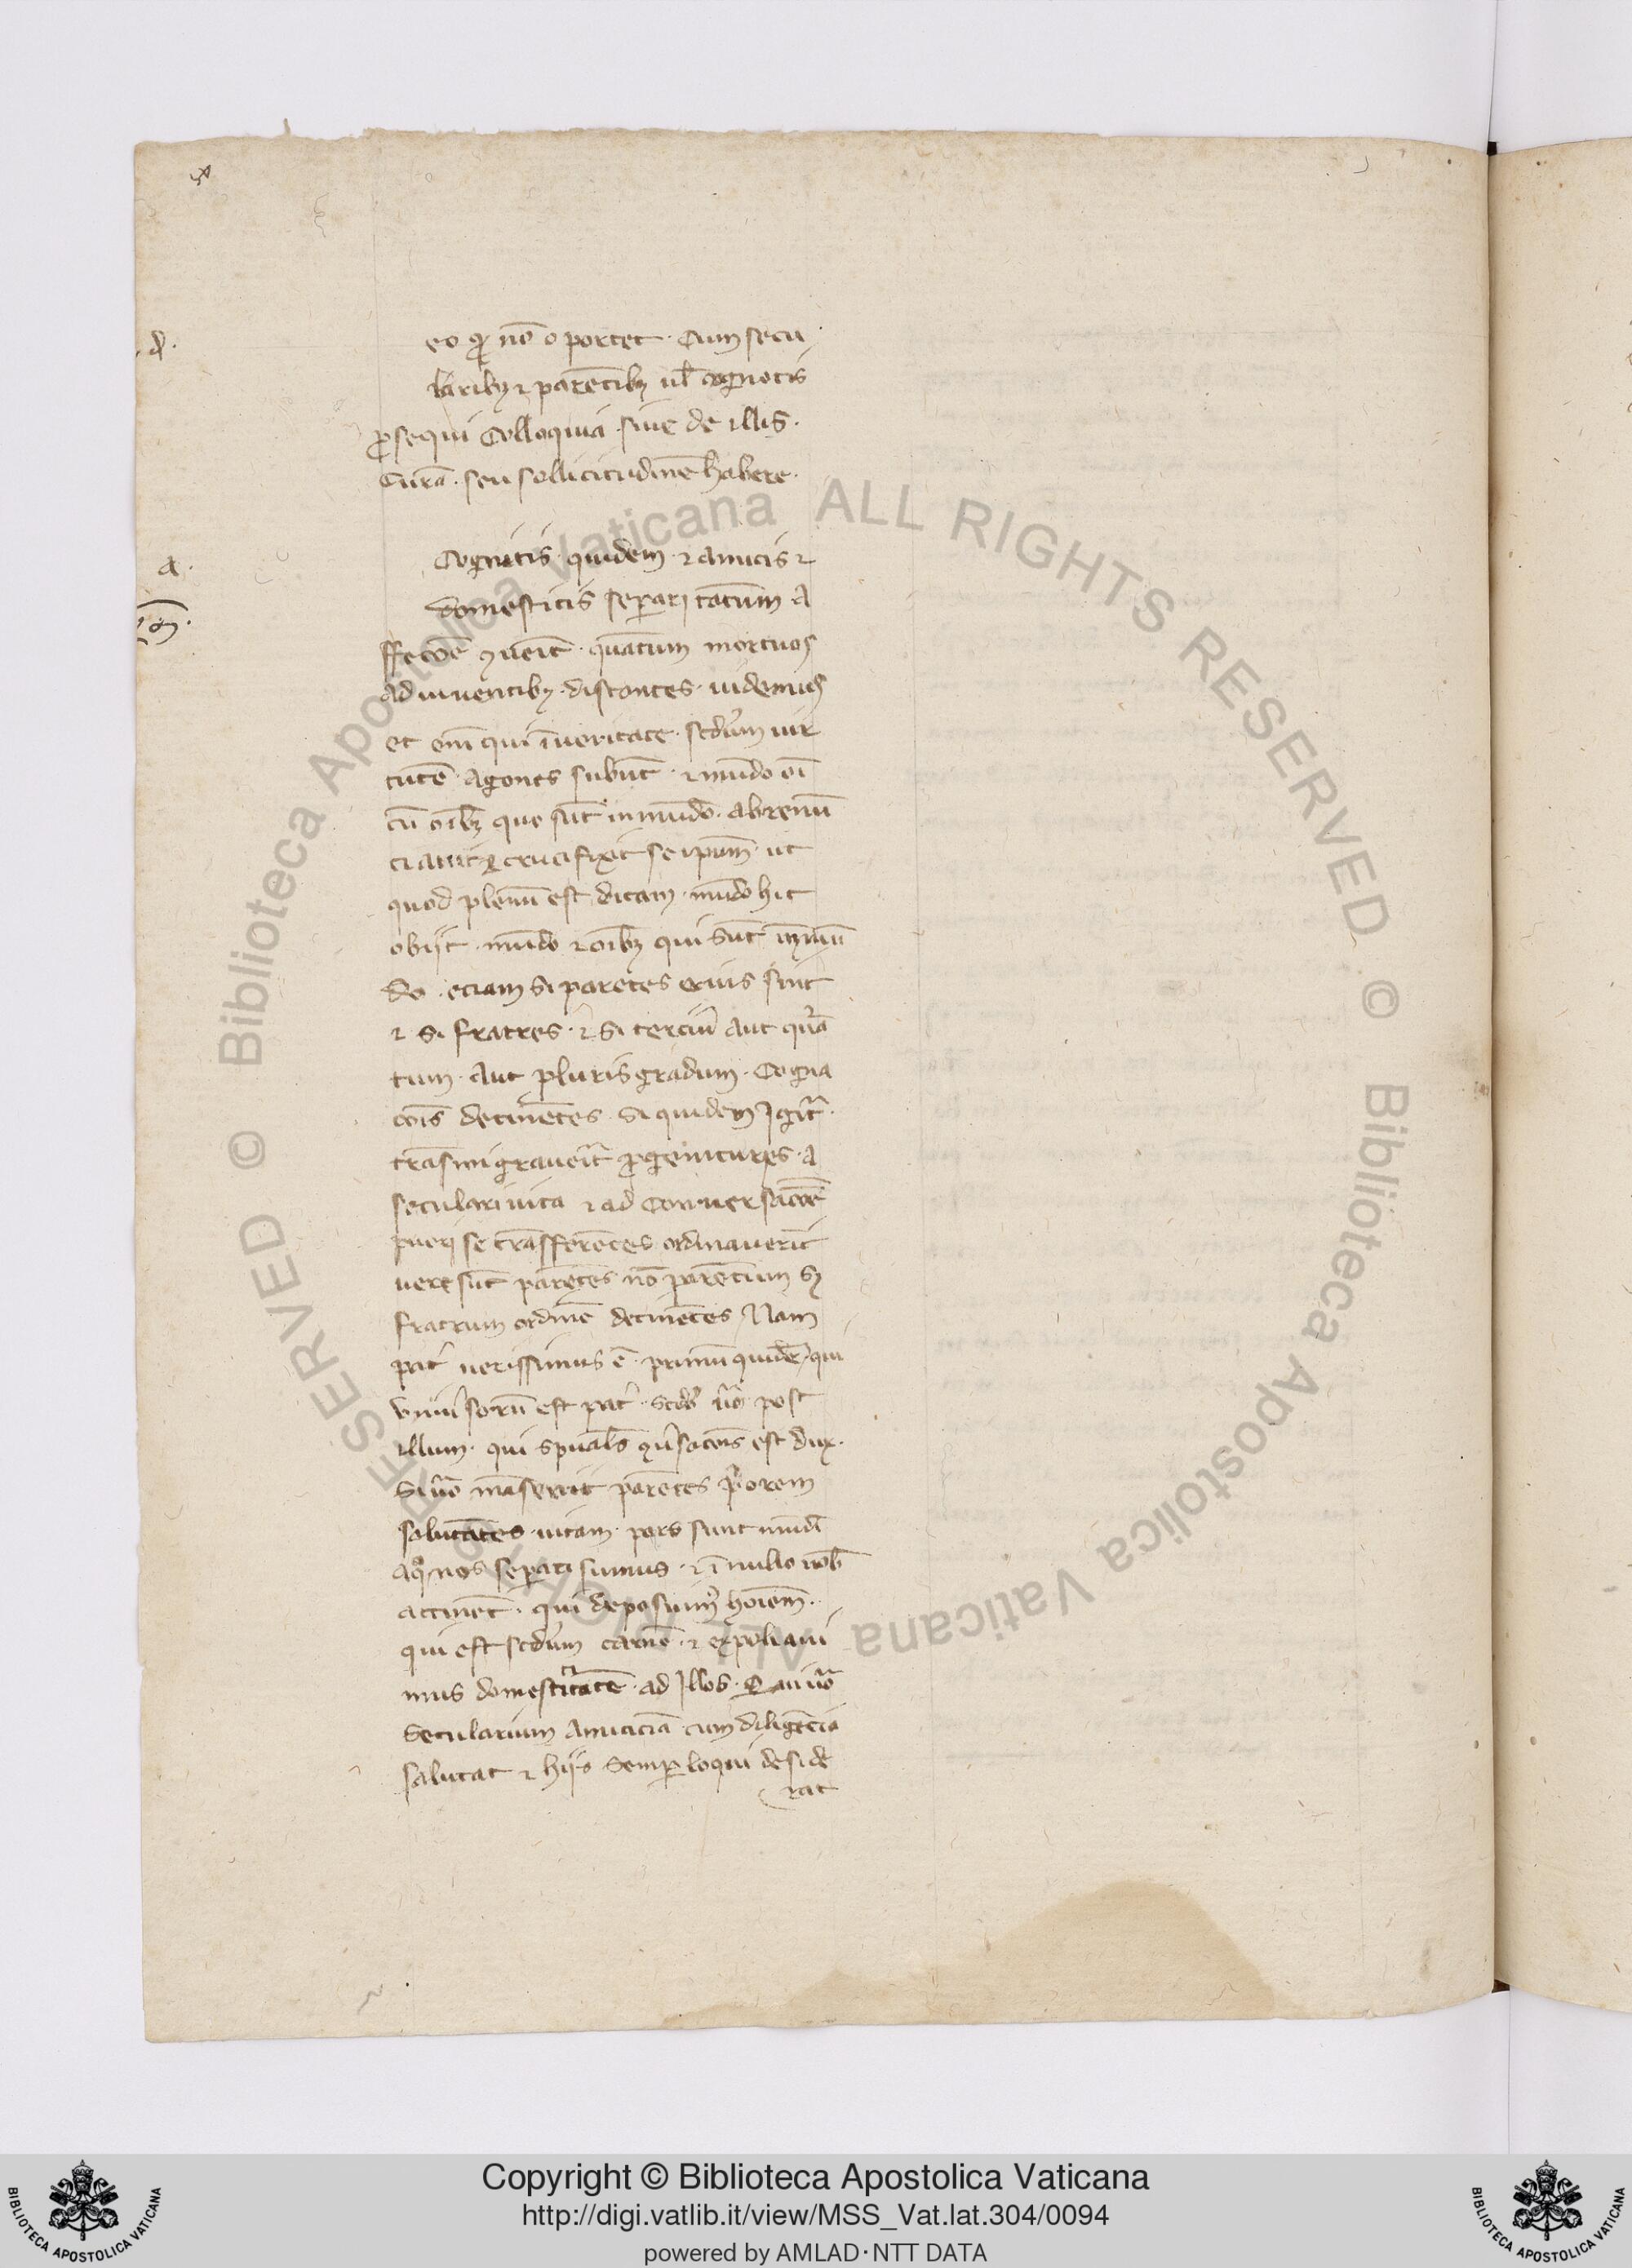 .d.
eo qꝫ nō oportet. Cum secu
laribꝫ ⁊ parētibꝫ ul̄ cognotis
ꝓsequi Colloquia. siue de illis.
Curā. seu sollicitudinē habere.
a.
Cognitis. quidem. ⁊ amicis ⁊
domesticis separi tātum a
ffectōe ꝯueīt. quātum mortuos
ad uiuentibꝫ. distantes. uidemus
et em̄ qui ī ueritate. scd̄um uir
tutē. agones subiit. ⁊ mūdo oī
cū oībꝫ que sūt in mūdo. abrenū
ciauit ⁊ crucifixit se ipsum. ut
quod plenū est dicam. mūdo hic
obijt. mūdo ⁊ oībꝫ qui sūt in mū
do. eciam si parētes eius sint
⁊ si fratres. ⁊ si terciū aut quar
tum. aut pluris gradum. Cogna
cōis detinētes. Si quidem Igit᷑.
trāsmigraueīt ꝓgenitures. a
seculari uita ⁊ ad Conuersacōē
pueri se trāsfferētes ordinauerīt
uere sūt parētes nō parētum sꝫ
fratrum ordinē detinētes. Nam
pat᷑ uerissimus ē. primū quidē. qui
Uniu᷑sorū est pat᷑. Scd̄s u᷑o post
illum. qui sp̄ualis ꝯu᷑sacōis est dux.
Si u᷑o māserīt parētes p᷑orem
salutātes. uitam. pars sunt mūdi
a qͦ nos separati sumus. ⁊ ī nullo nob̄
attinēt. qui deposuimꝰ hoīem.
qui est scd̄um carnē. ⁊ expoliaui
mus domesticitatē. ad Illos. Qui u᷑o
Secularium amiciciā cum diligēcia
salutat ⁊ hijs semꝑ loqui deside
rat
Copyright © Biblioteca Apostolica Vaticana
http://digi.vatlib.it/view/MSS_Vat.lat.304/0094
powered by AMLAD·NTT DATA
BIBLIOTECA APOSTOLICA VATICANA
BIBLIOTECA APOSTOLICA VATICANA
© Biblioteca Apostolica Vaticana ALL RIGHTS RESERVED
© Biblioteca Apostolica Vaticana ALL RIGHTS RESERVED